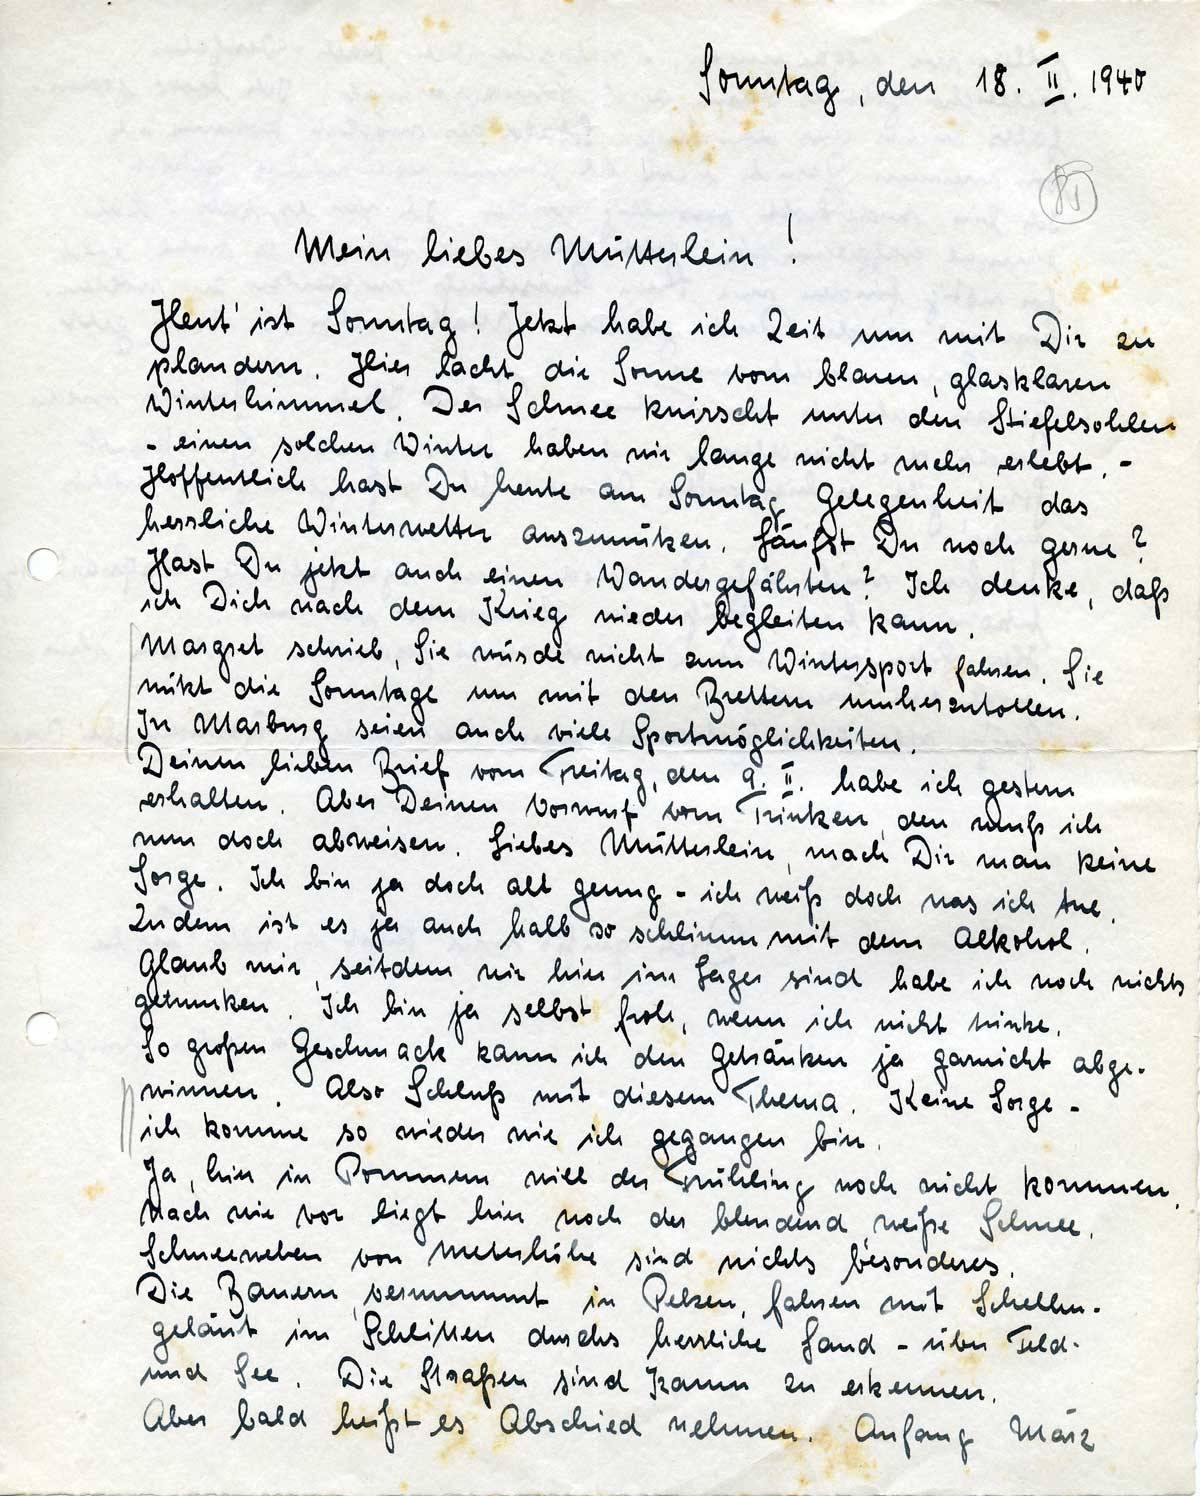 Sonntag, den 18. II. 1940
Mein liebes Mütterlein!
Heut' ist Sonntag! Jetzt habe ich Zeit um mit Dir zu
plaudern. Hier lacht die Sonne vom blauen, glasklaren
Winterhimmel. Der Schnee knirscht unter den Stiefelsohlen
- einen solchen Winter haben wir lange nicht mehr erlebt. -
Hoffentlich hast Du heute am Sonntag Gelegenheit das
herrliche Winterwetter auszunützen. Läufst Du noch gerne?
Hast Du jetzt auch einen Wandergefährten? Ich denke, daß
ich Dich nach dem Krieg wieder begleiten kann.
Margret schrieb, Sie würde nicht zum Wintersport fahren. Sie
nützt die Sonntage um mit den Brettern umherzutollen.
In Marburg seien auch viele Sportmöglichkeiten.
Deinen lieben Brief vom Freitag, den 9. II. habe ich gestern
erhalten. Aber Deinen Vorwurf vom Trinken, den muß ich
nun doch abweisen. Liebes Mütterlein, mach Dir man keine
Sorge. Ich bin ja doch alt genug - ich weiß doch was ich tue.
Zudem ist es ja auch halb so schlimm mit dem Alkohol.
Glaub mir, seitdem wir hier im Lager sind habe ich noch nichts
getrunken. Ich bin ja selbst froh, wenn ich nicht trinke.
So großen Geschmack kann ich den Getränken ja garnicht abge-
winnen. Also Schluß mit diesem Thema. Keine Sorge -
ich komme so wieder wie ich gegangen bin.
Ja, hier in Pommern will der Frühling noch nicht kommen.
Nach wie vor liegt hier noch der blendend weiße Schnee.
Schneeweben von Meterhöhe sind nichts besonderes.
Die Bauern, vermummt in Pelzen, fahren mit Schellen-
geläut im Schlitten durchs herrliche Land - über Feld-
und See. Die Straßen sind kaum zu erkennen.
Aber bald heißt es Abschied nehmen. Anfang März